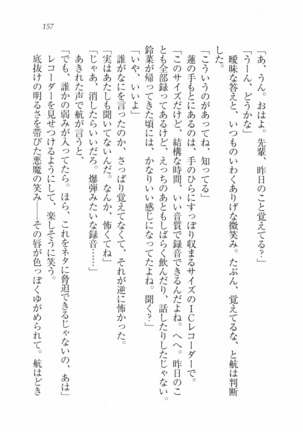 157
「あ、うん。おはよ。先輩、昨日のこと覚えてる？」
「うーん、どうかな」
曖昧な答えと、いつものいわくありげな微笑み。たぶん、覚えてるな、と航は判断
した。
「こういうのがあってね、知ってる？」
蓮の手もとにあるのは、手のひらにすっぽり収まるサイズのＩＣレコーダーで。
「このサイズだけど、結構な時間、いい音質で録音できるんだよね。へへ。昨日のこ
とも全部録ってあるけど、えっちのあともしばらく飲んだり、話したりしたじゃない。
鈴菜が帰ってきた頃には、かなりいい感じになってたよね。聞く？」
「いや、いいよ」
誰がなにを言ったのか、さっぱり覚えてなくて、それが逆に怖かった。
「実はあたしも聞いてないんだ。なんか、怖くてね」
「じゃあ、消したらいいだろ。爆弾みたいな録音……」
あきれた声で航が言うと、
「でも、誰かの弱みが入ってたら。ほら、これをネタに脅迫できるじゃないの、あは」
レコーダーを見せつけるようにして、楽しそうに笑う。
底抜けの明るさを帯びた悪魔の笑み――その唇が色っぽくゆがめられて。航はどき